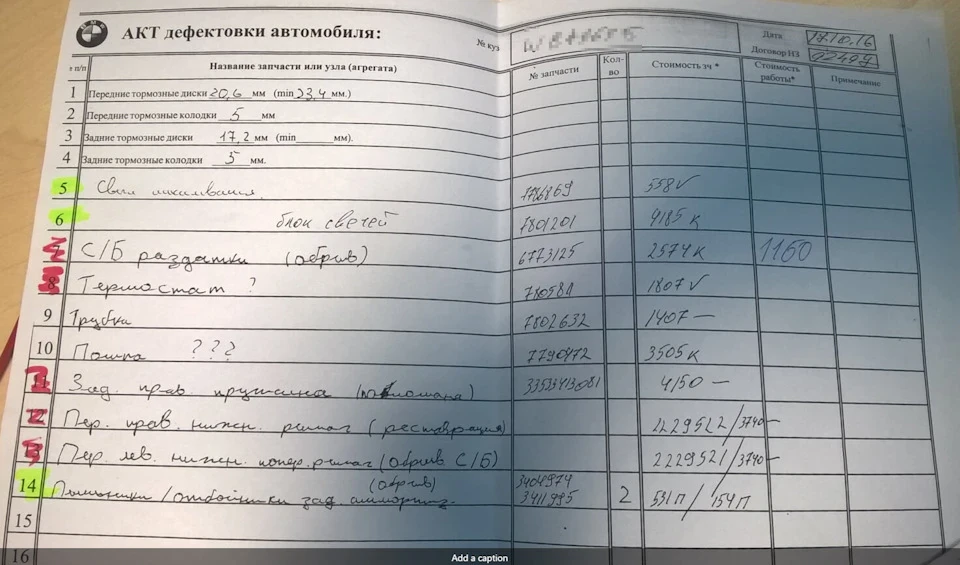 АКТ дефектовки автомобиля:
№ куз
Дата 17.10.16
Договор НЗ
№ п/п Название запчасти или узла (агрегата) № запчасти Кол-во Стоимость зч * Стоимость работы* Примечание
1 Передние тормозные диски 20,6 мм (min 23,4 мм.)
2 Передние тормозные колодки 5 мм
3 Задние тормозные диски 17,2 мм (min мм).
4 Задние тормозные колодки 5 мм.
5 Свечи накаливания 7786869 558 v
6 блок свечей 7801201 9185 к
7 С/Б раздатки (обрыв) 6773125 2574 к 1160
8 Термостат ? 1807 v
9 Трубка 7802632 1407 —
10 ??? 7790472 3505 к
11 Зад. прав. пружина 33533413081 4150 —
12 Пер. прав. нижн. рычаг (реставрация) 2229522 / 3740 —
13 Пер. лев. нижн. попер. рычаг (обрыв С/Б) 2229521 / 3740 —
14 Пыльники / отбойники зад. амморт. (обрыв) 3404974 3411995 2 531 П / 154 П
15
16
Add a caption